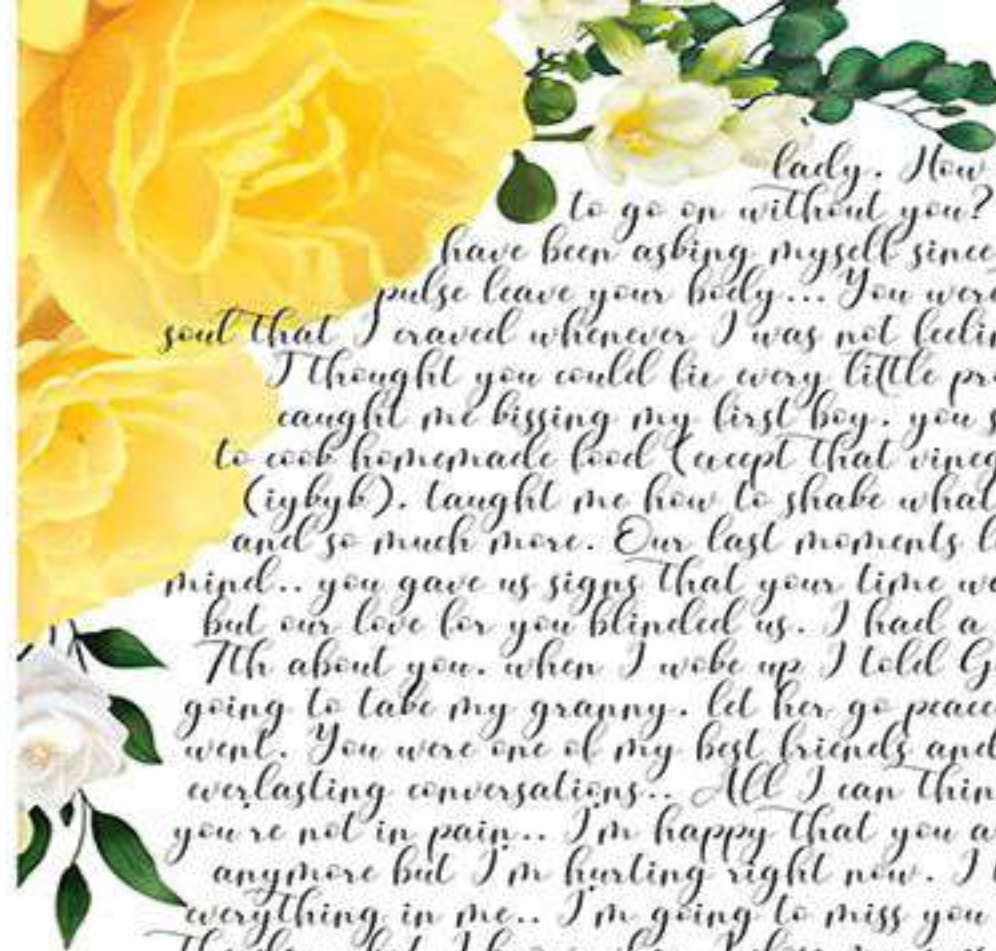 lady. How
to go on without you?
have been asking myself since
pulse leave your body... You were
soul that I craved whenever I was not feelin
I thought you could fix every little pr
caught me kissing my first boy. you s
to cook homemade food (except that vineg
(iykyk). taught me how to shake what
and so much more. Our last moments l
mind.. you gave us signs that your time w
but our love for you blinded us. I had a
7th about you. when I woke up I told G
going to take my granny. let her go peace
went. You were one of my best friends and
everlasting conversations.. All I can thin
you're not in pain.. I'm happy that you a
anymore but I'm hurting right now. I
everything in me.. I'm going to miss you